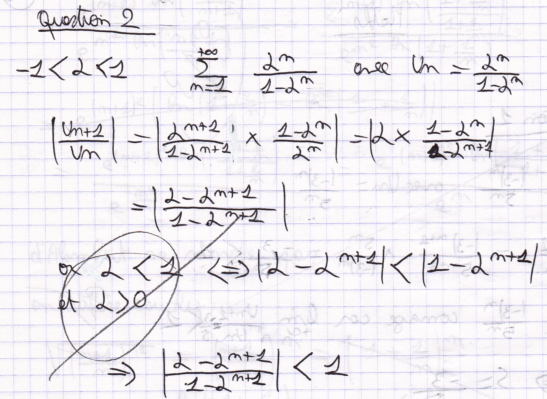 Question 2
-1 < α < 1   \sum_{n=1}^{+∞} \frac{α^n}{1-α^n}   avec Un = \frac{α^n}{1-α^n}
|\frac{Un+1}{Un}| = |\frac{α^{n+1}}{1-α^{n+1}} × \frac{1-α^n}{α^n}| = |α × \frac{1-α^n}{1-α^{n+1}}|
= |\frac{α-α^{n+1}}{1-α^{n+1}}|
or α < 1 ⇔ |α - α^{n+1}| < |1 - α^{n+1}|
et α > 0
⇒ |\frac{α-α^{n+1}}{1-α^{n+1}}| < 1